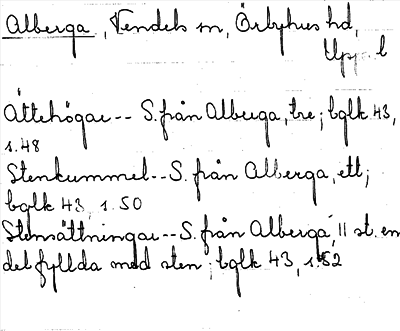 Alberga, Vendels sn, Örbyhus hd,
Upp l
Ättehögar -- S. från Alberga, tre; bglk 43,
s. 48
Stenkummel -- S. från Alberga, ett;
bglk 43, s. 50
Stensättningar -- S. från Alberga, 11 st. en
del fyllda med sten; bglk 43, s. 52